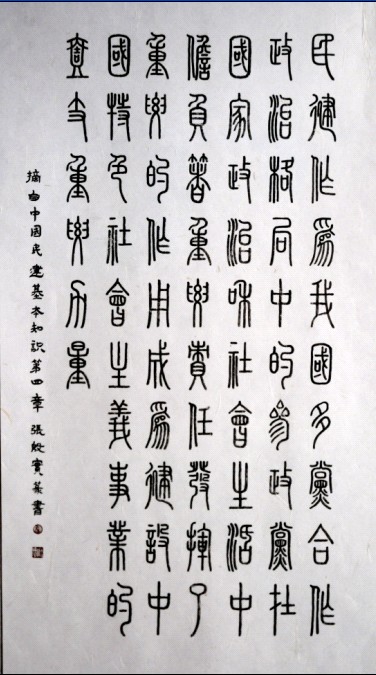 民建作爲我國多黨合作
政治格局中的參政黨在
國家政治和社會生活中
擔負著重要責任發揮了
重要的作用成爲建設中
國特色社會主義事業的
壹支重要力量
摘由中國民建基本知識第四章 張殿賓篆書